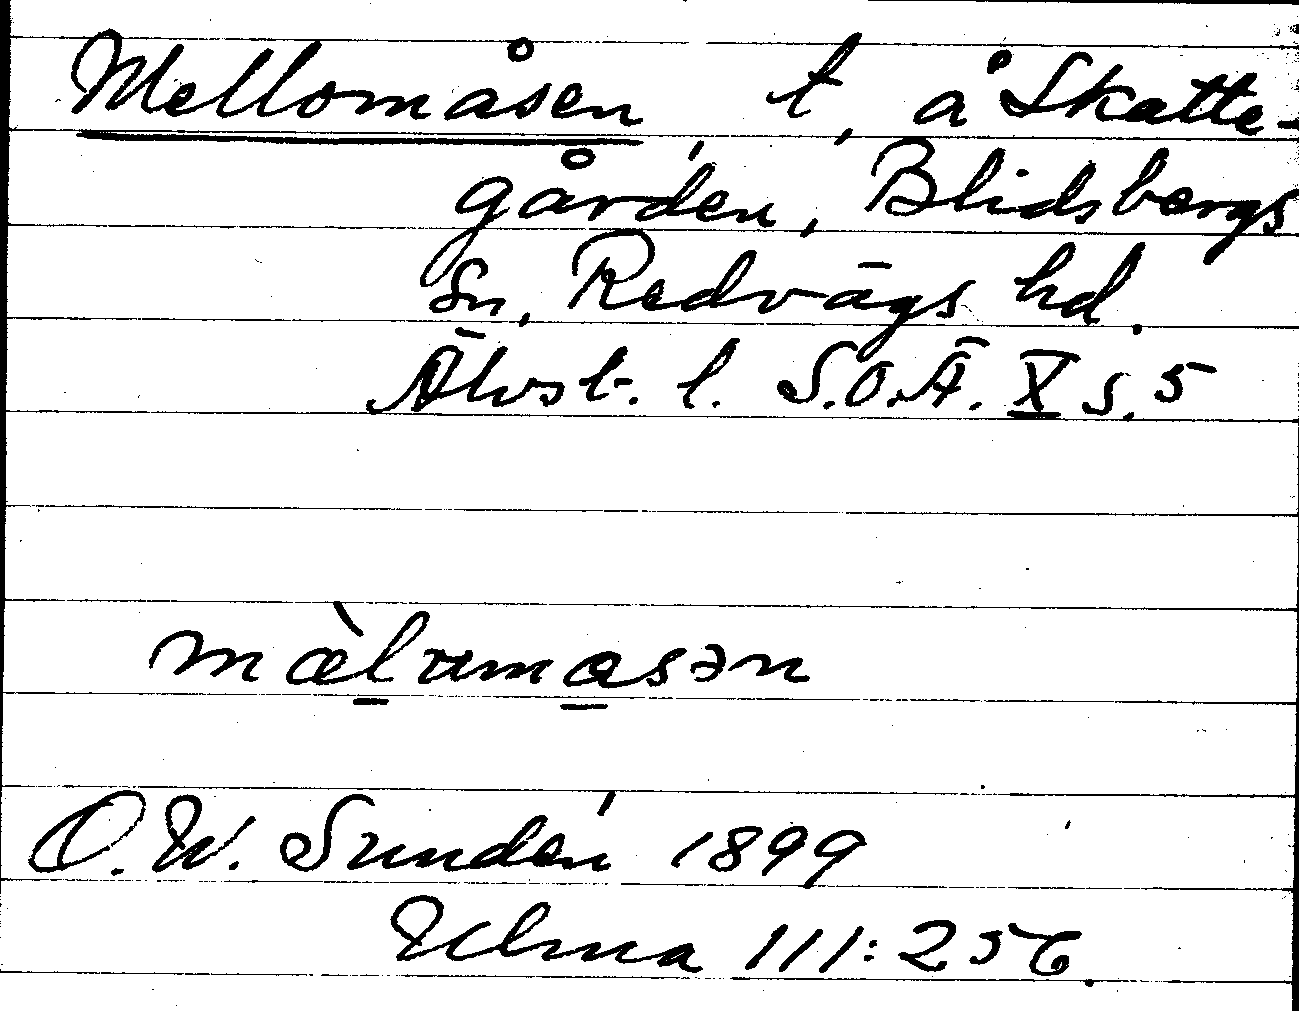 Mellomåsen, t, å Skatte-
gården, Blidsbergs
sn, Redvägs hd.
Älvsb. l. S.O.Ä. X s. 5
mæ̀l̠umɑ̠sən
O.W. Sundén 1899
Ulma 111:256.